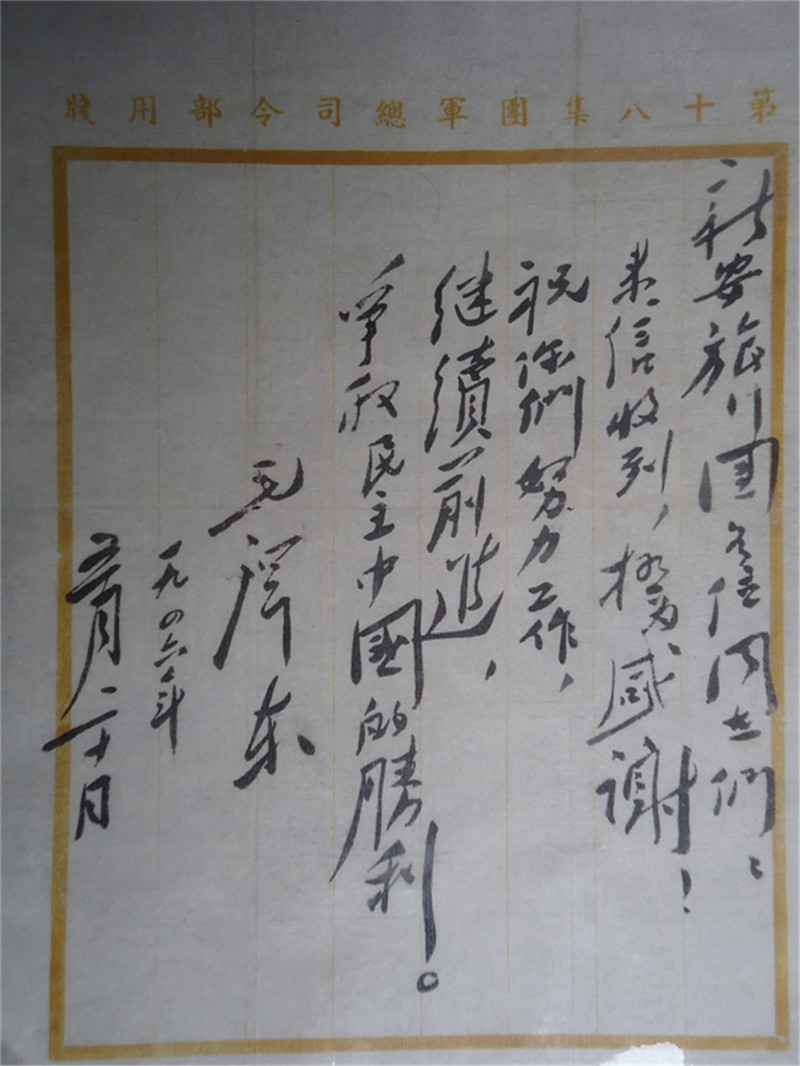 第十八集團軍總司令部用牋
新安旅行團各位同志們：
来信收到，極为感謝！
祝你們努力工作，
继續前進，
爭取民主中國的勝利。
毛澤东
一九四六年
五月二十日